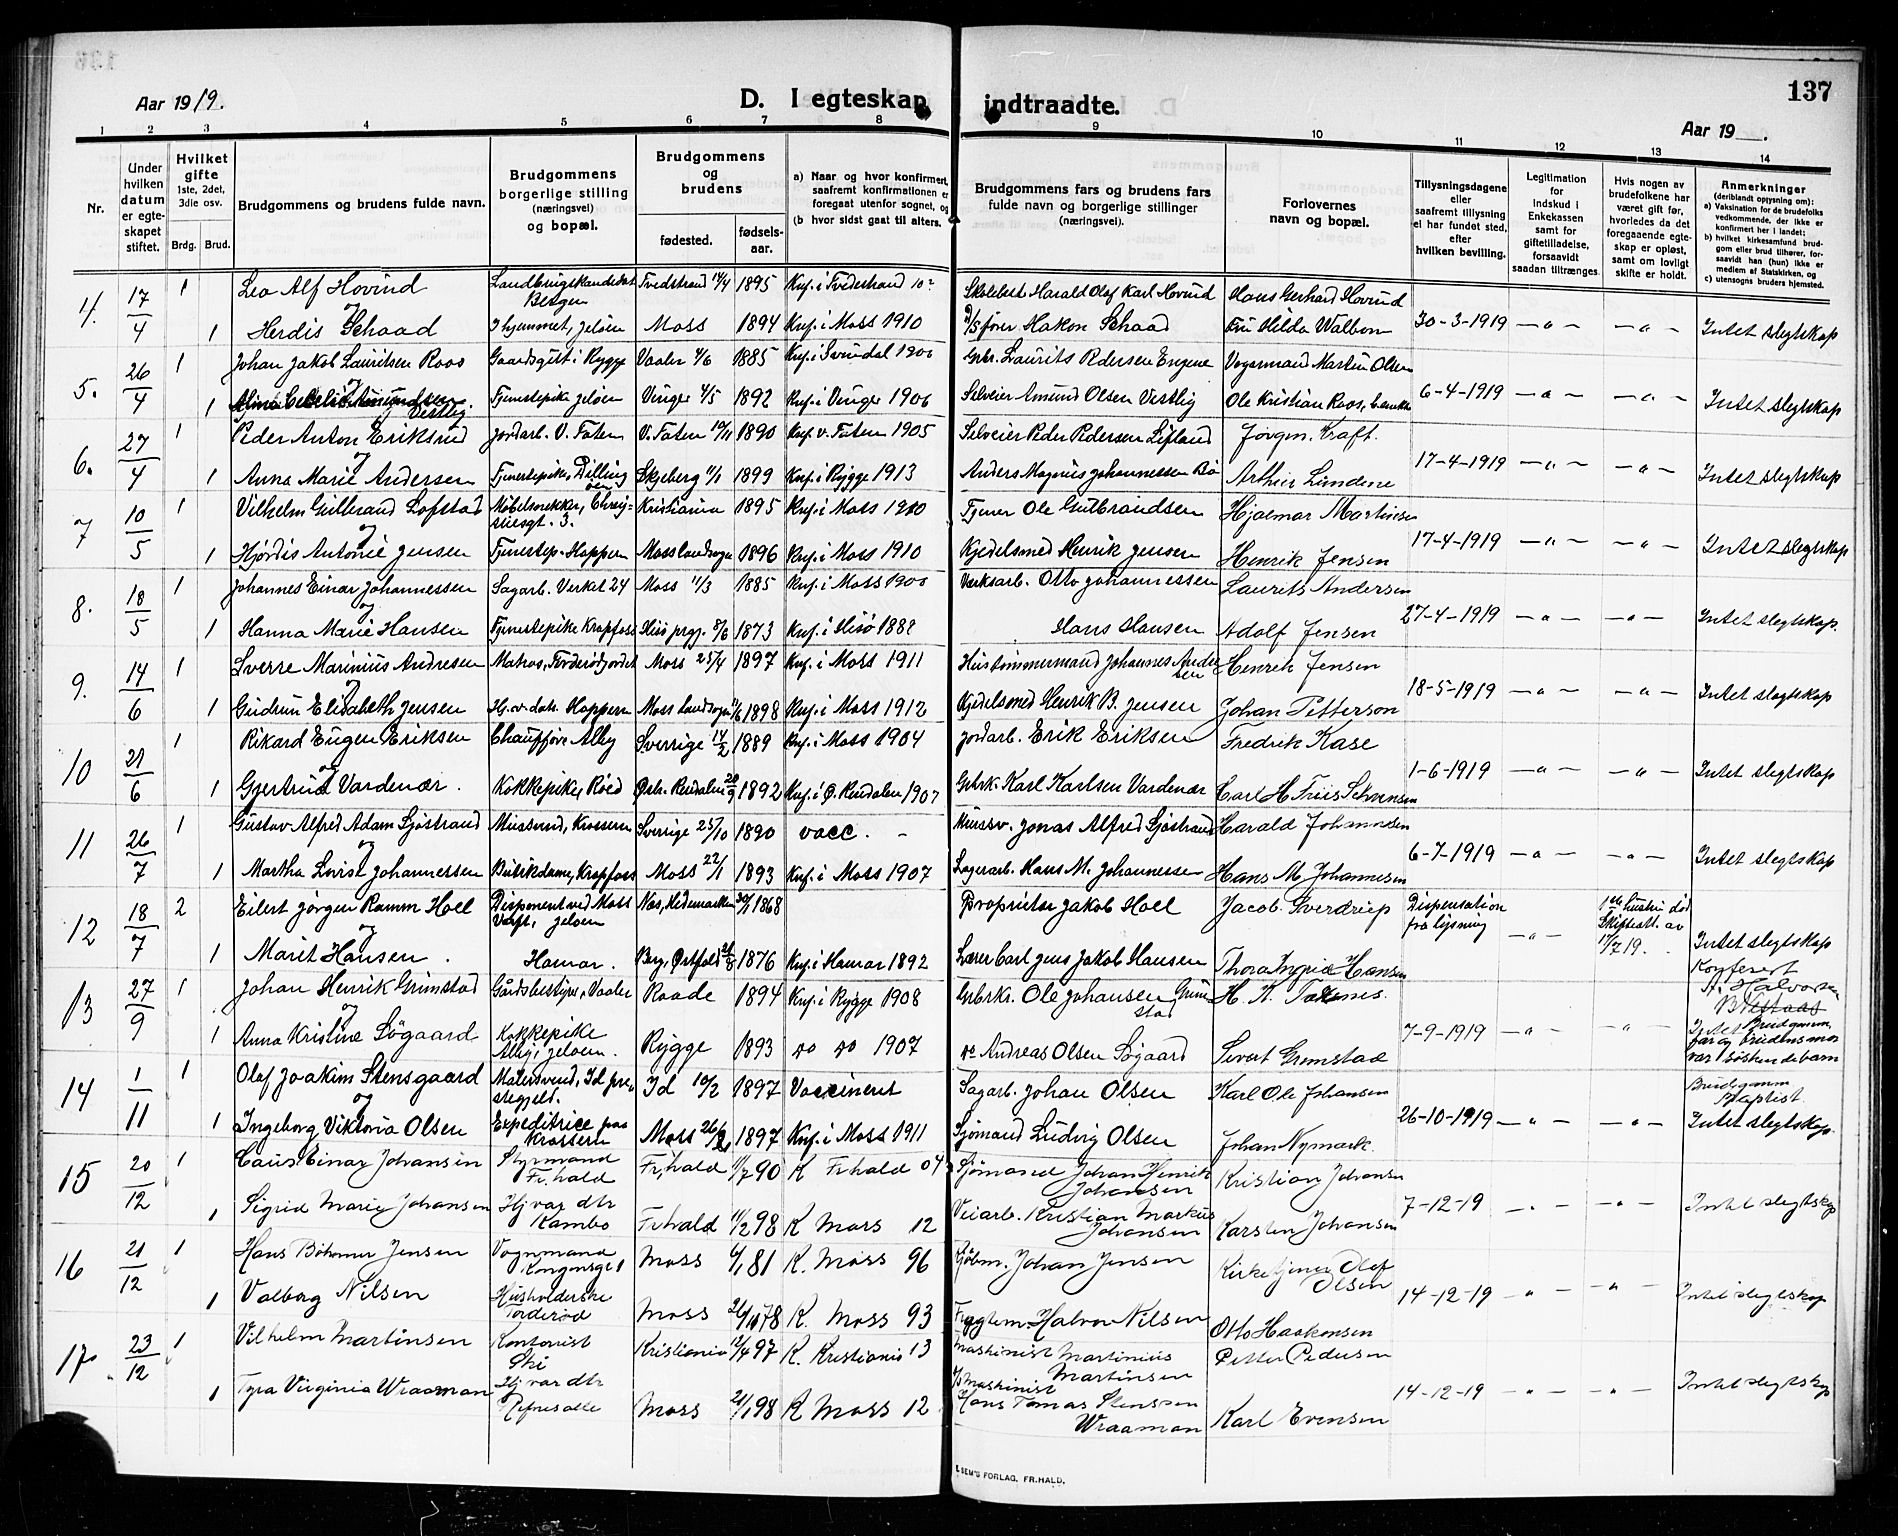 Aar 1919.
D. I egteskap indtraadte.
137
Aar 19 .
1 2 3 4 5 6 7 8 9 10 11 12 13 14
Nr.
Under hvilken datum er egteskapet stiftet.
Hvilket gifte 1ste, 2det, 3die osv.
Brdg. Brud.
Brudgommens og brudens fulde navn.
Brudgommens borgerlige stilling (næringsvei) og bopæl.
Brudgommens og brudens
fødested. fødselsaar.
a) Naar og hvor konfirmert, saafremt konfirmationen er foregaat utenfor sognet, og
b hvor sidst gaat til alters.
Brudgommens fars og brudens fars fulde navn og borgerlige stillinger (næringsvei).
Forlovernes navn og bopæl.
Tillysningsdagene eller saafremt tillysning ei har fundet sted, efter hvilken bevilling.
Legitimation for indskud i Enkekassen samt for giftetilladelse, forsaavidt saadan tiltrænges.
Hvis nogen av brudefolkene har været gift før, hvorledes da det foregaaende egteskap er opløst, samt om lovligt skifte er holdt.
Anmerkninger (deriblandt oplysning om):
a) Vaksination for de brudefolks vedkommende, der ikke er konfirmert her i landet;
b) hvilket kirkesamfund brudgom eller brud tilhører, forsaavidt han (hun) ikke er medlem af Statskirken, og
c) utensogns bruders hjemsted.
4. 17/4 1 Leo Alf Hovind 1895 Knf. i Tvedestrand Harald Olaf Karl Hovind Hans Gerhard Hovind
og
1 Herdis Schaad I hjemmet, Jeløen Moss 1894 Knf. i Moss 1910 Hakon Schaad Fru Hilda Walbom 30-3-1919 — " — — " — Intet slegtskap
5. 26/4 1 Johan Jakob Lauritsen Roos Gaardsgut i Rygge Vaaler 4/6 1885 Knf. i Svindal 1900 Gbr. Laurits Pedersen Engene Vognmand Martin Olsen
og
1 Vestlig Tjenestepike Jeløen Venger 4/5 1892 Knf. i Venger 1906 Selveier Amund Olsen Vestlig Ole Kristian Roos, 6-4-1919 — " — — " — Intet slegtskap
6. 27/4 1 Peder Anton Eriksrud Jordarb. V. Toten V. Toten 10/11 1890 Knf. V. Toten 1905 Selveier Peder Pedersen Jørgen Kraft.
og
1 Anna Marie Andersen Tjenestepike, Dilling Skjeberg 11/1 1899 Knf. i Rygge 1913 Anders Magnus Johannessen Bø Arthur Lundene 17-4-1919 — " — — " — Intet slegtskap
7 10/5 1 Vilhelm Gulbrand Lofstad Møbelsnekker, Kristiania 1895 Knf. i Moss 1910 Tjener Ole Gulbrandsen Hjalmar Martinsen
og
1 Hjørdis Antonie Jensen Tjenestep. Hoppern Moss landsogn 1896 Knf. i Moss 1910 Kjedelsmed Henrik Jensen Henrik Jensen 17-4-1919 — " — — " — Intet slegtskap
8. 18/5 1 Johannes Einar Johannessen Sagarb. Verket 24 Moss 11/3 1885 Knf. i Moss 1900 Verksarb. Otto Johannessen Laurits Andersen
og
1 Hanna Marie Hansen Tjenestepike Krapfoss Hisø prgj. 8/6 1873 Knf. i Hisø 1888 Hans Hansen Adolf Jensen 27-4-1919 — " — — " — Intet slegtskap.
9. 14/6 1 Sverre Marinius Andresen Matros, Moss 25/4 1897 Knf. i Moss 1911 Hustømmermand Johannes Andersen Henrik Jensen
og
1 Gudrun Elisabeth Jensen Hj.v. datr. Hoppern Moss landsogn 1898 Knf. i Moss 1912 Kjedelsmed Henrik B. Jensen Johan Petterson 18-5-1919 — " — — " — Intet slegtskap
10 21/6 1 Rikard Eugen Eriksen Chauffør Alby Sverrige 14/2 1889 Knf. i Moss 1904 Jordarb. Erik Eriksen Fredrik Kase
og
1 Gjertrud Vardenær. Kokkepike, Røed Østr. Rendalen 20/9 1892 Knf. i Ø. Rendalen 1907 Gbrk. Karl Karlsen Vardenær Carl H Friis 1-6-1919 — " — — " — Intet slegtskap
11 26/7 1 Gustav Alfred Adam Sjøstrand Mursvend, Krossern Sverrige 25/10 1890 vacc. - Mursv. Jonas Alfred Sjøstrand Harald Johannesen
og
1 Martha Lovise Johannessen Butikdame, Krapfoss Moss 22/1 1893 Knf. i Moss 1907 Lagerarb. Hans M. Johannessen Hans M. Johannesen 6-7-1919 — " — — " — Intet slegtskap
12 18/7 2 Eilert Jørgen Ramm Hoel Disponent ved Moss Verft, Jeløen Nes, Hedemarken 30/1 1868 Proprietær Jakob Hoel Jacob Sverdrup Dispensation fra lysning 1ste hustru død Skifteatt. av 17/7 19.
og
1 Marit Hansen. Hamar. Berg, Østfold 1876 Knf. i Hamar 1892 Lærer Carl Jens Jakob Hansen Thora Ingrid Hansen — " — Intet slegtskap
13 27/9 1 Johan Henrik Grimstad Gårdsbestyrer, Vaaler Raade 1894 Knf. i Rygge 1908 Gbrk. Ole Johansen Grimstad H. K. Konfereret Halvorsen
og
1 Anna Kristine Søgaard Kokkepike Alby, Jeløen. Rygge 1893 do do 1907 do Andreas Olsen Søgaard Sivert Gromstad 7-9-1919 — " — — " — Brudgommens far og brudens mor var søskendebarn
14 1/11 1 Olaf Joakim Stensgaard Malersvend, Id prestegjeld. Id 10/2 1897 Vaccineret Sagarb. Johan Olsen Karl Ole Johansen Brudgomm Baptist.
og
1 Ingeborg Viktoria Olsen Expeditrice paa Krossern Moss 1897 Knf. i Moss 1911 Sjømand Ludvig Olsen Johan Nymark. 26-10-1919 — " — — " — Intet slegtskap.
15 20/12 1 Einar Johansen Styrmand Fr.hald Fr.hald 90 K Fr.hald 04 Sjømand Johan Henrik Johansen Kristian Johansen
1 Sigrid Marie Johansen Hj var dtr Kambo Fr.hald 11/2 98 K Moss 12 Veiarb. Kristian Markus Johansen Karsten Johansen 7-12-19 - " - - " - Intet slegtskap
16 21/12 1 Hans Bøhmer Jensen Vognmand Kongensgt Moss 81 K. Moss 96 Kjøbm. Johan Jensen Kirketjener Olaf Olsen
1 Valborg Nilsen Husholderske Torderød Moss 78 K. Moss 93 Halvor Nilsen Otto Haakonsen 14-12-19 - " - " Intet slegtskap
17. 23/12 1 Vilhelm Martinsen Kontorist Ski Kristiania 12/4 97 K. Kristiania 13 Maskinist Martinius Martinsen Petter Pedersen
1 Tyra Virginia Wraaman Hj var dtr Moss 21/1 98 K Moss 12 Maskinist Hans Tomas Stensen Wraaman Karl Evensen 14-12-19 - " - - " - Intet slegtskap
SEM'S FORLAG, FR.HALD.